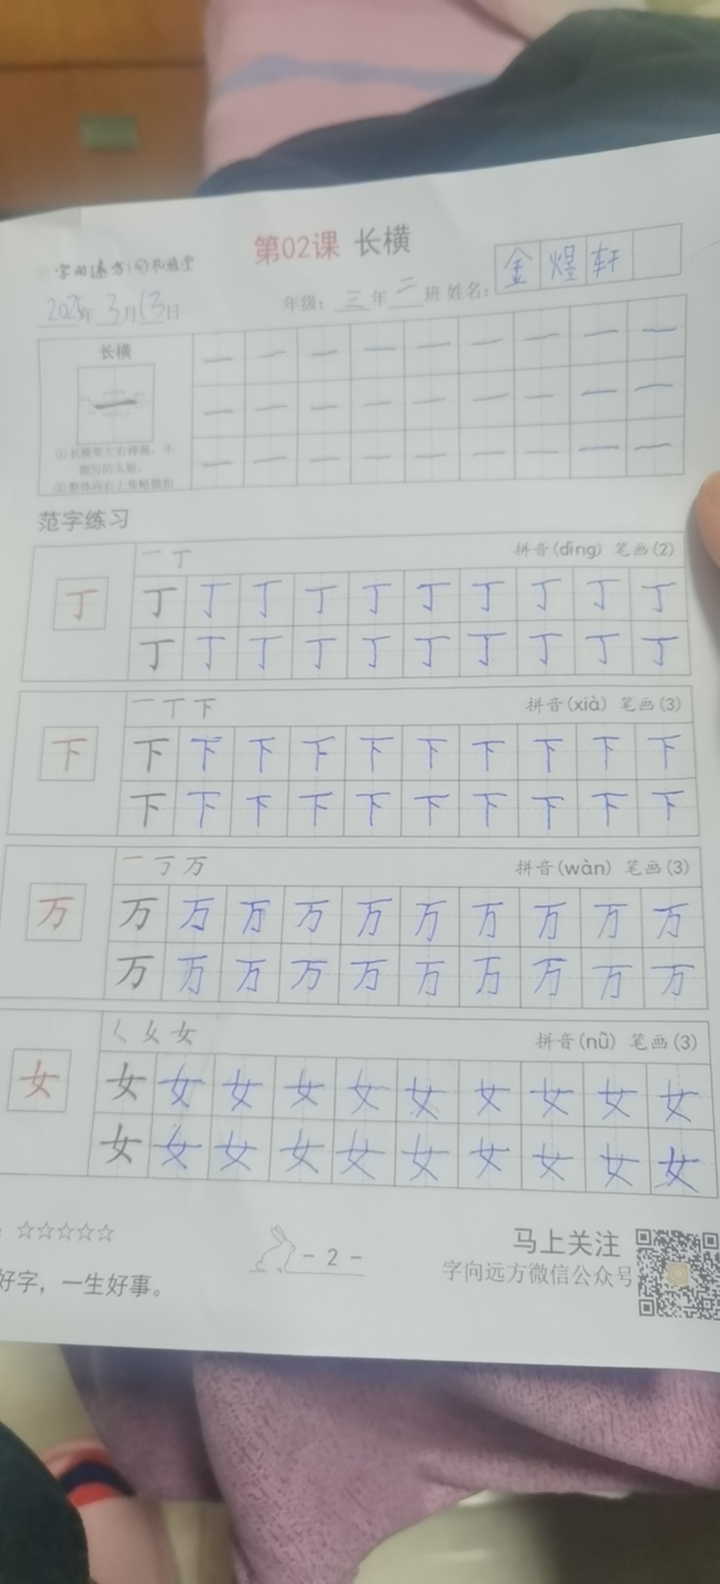 第02课 长横
字向远方
2025年 3月13日
年级：三年二班 姓名：金煜轩
长横
①长横要左右伸展，不
能写的太短。
②整体向右上
范字练习
一丁 拼音(dīng) 笔画(2)
丁 丁丁丁丁丁丁丁丁丁丁
丁丁丁丁丁丁丁丁丁丁
一丅下 拼音(xià) 笔画(3)
下 下下下下下下下下下下
下下下下下下下下下下
一丂万 拼音(wàn) 笔画(3)
万 万万万万万万万万万万
万万万万万万万万万万
拼音(nǚ) 笔画(3)
女 女女女女女女女女女女
女女女女女女女女女女
☆☆☆☆☆
好字，一生好事。
- 2 -
马上关注
字向远方微信公众号